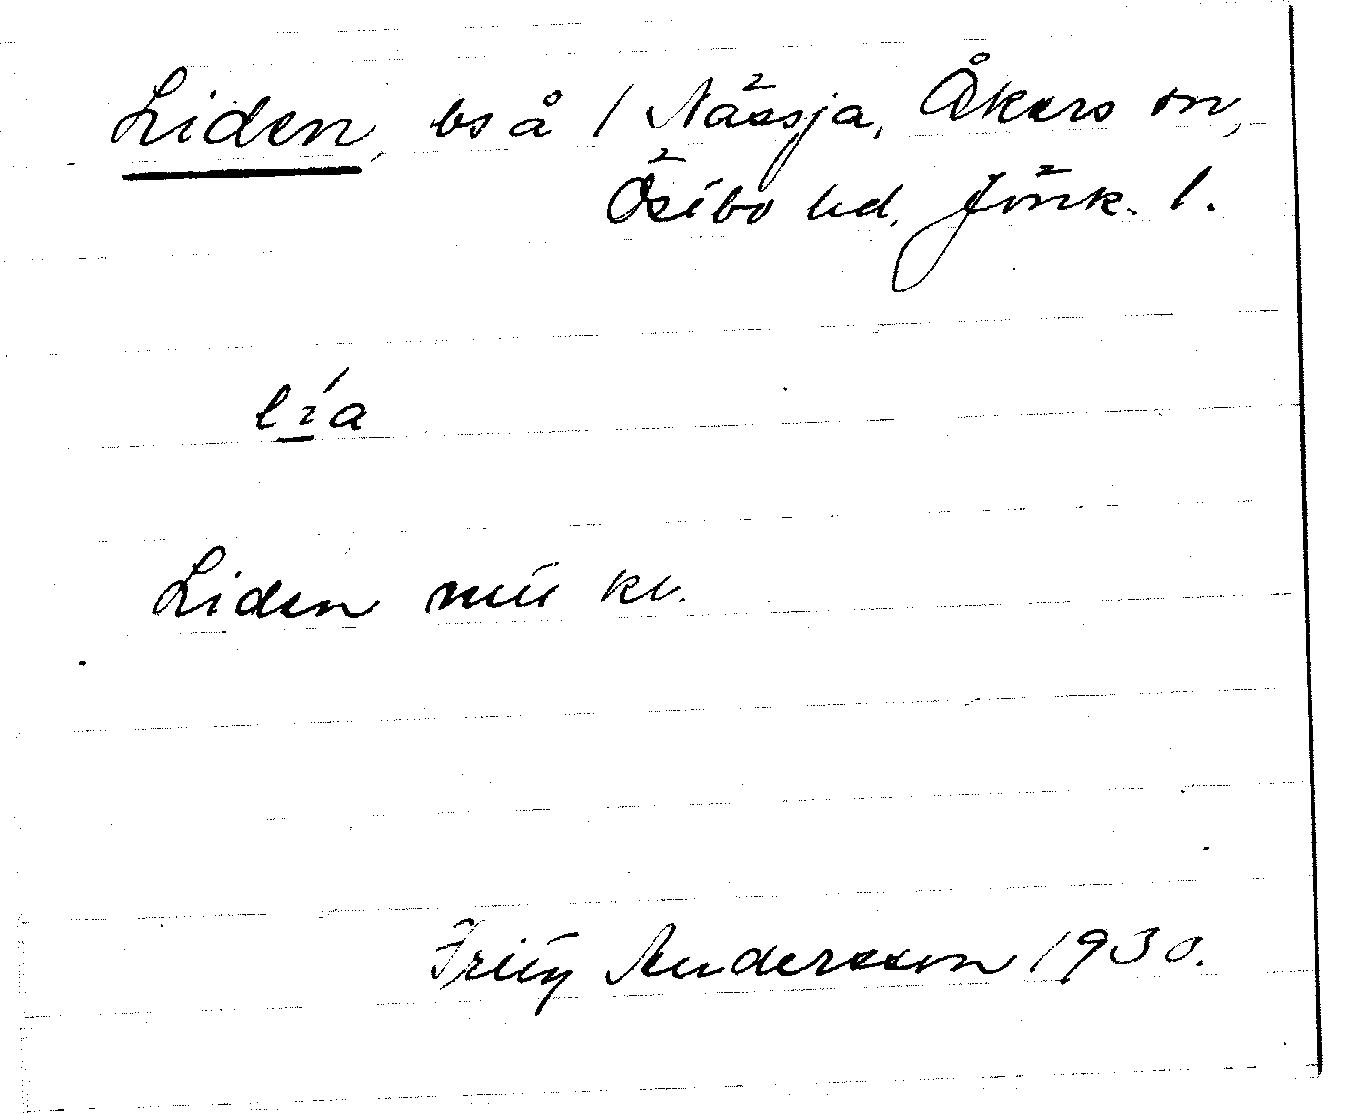 Liden, bs å 1 Nässja, Åkers sn,
Östbo hd, Jönk. l.
Liden mtl kr.
Fritz Andersson 1930.